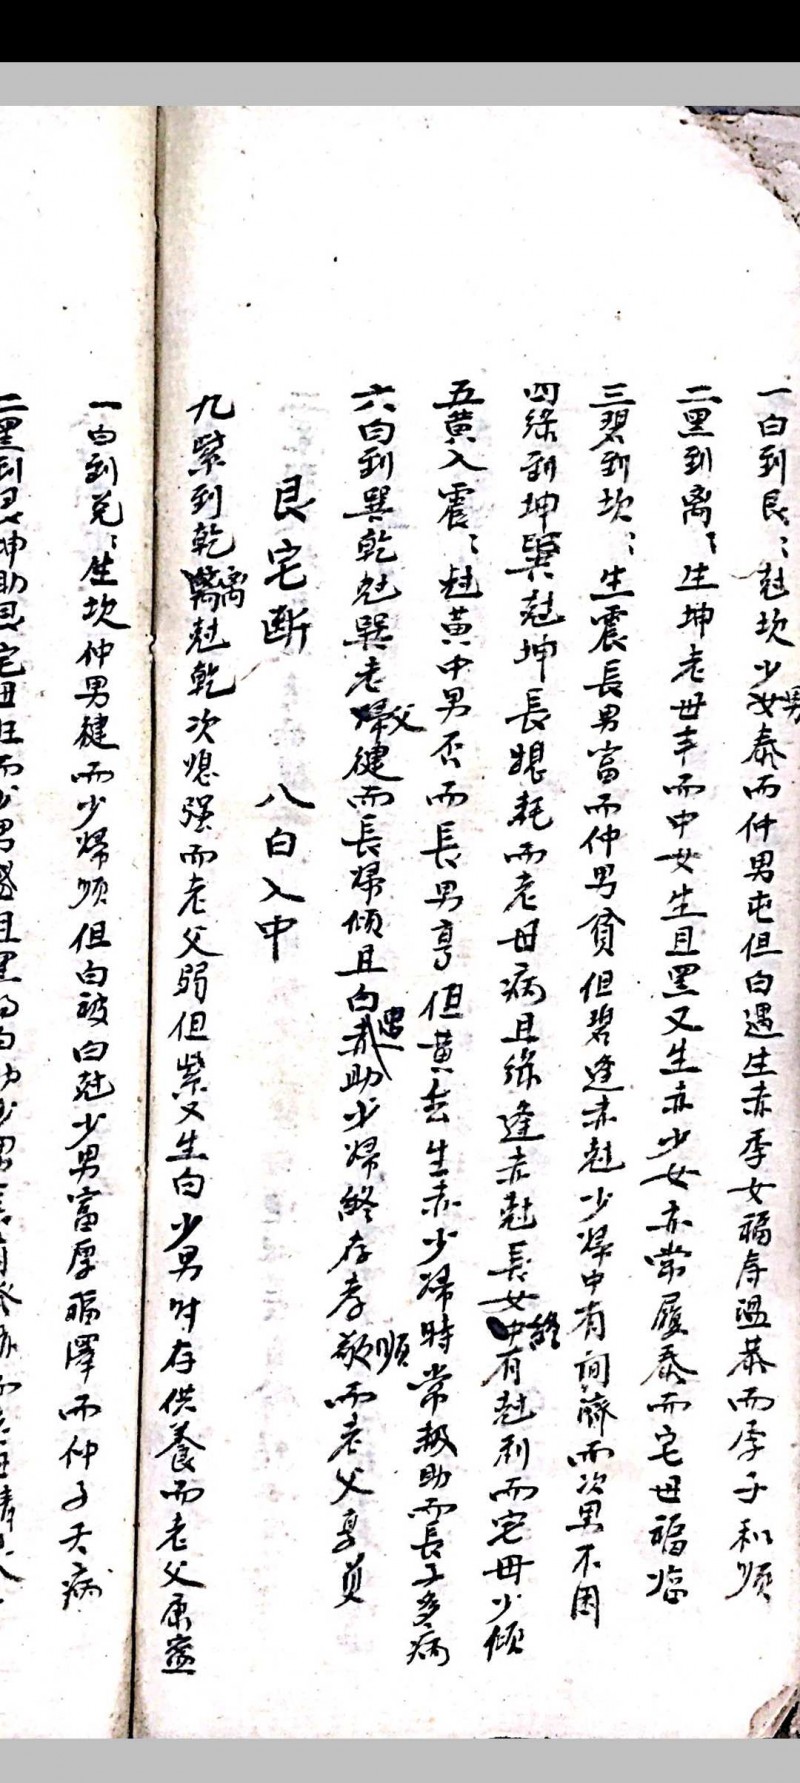 一白到艮〻尅坎少男泰而仲男屯但白遇生赤季女福存温恭而季子和順
二黑到离〻生坤老母丰而中女生且黑又生赤少女亦常履泰而宅母福臨
三碧到坎〻生震長男富而仲男貧但碧逢赤尅少婦中有间濟而次男不困
四綠到坤巽尅坤長媳耗而老母病且綠逢赤尅長女終有尅利而宅母少傾
五黃入震〻尅黃中男否而長男亨但黃去生赤少婦時常扱助而長子多病
六白到巽乾尅巽老父健而長婦傾且白遇赤助少婦終存孝順而老父享
艮宅断 八白入中
九紫到乾离尅乾次媳强而老父弱但紫又生白少男时存供養而老父康
一白到兑〻生坎仲男健而少婦順但白被白尅少男富厚福澤而仲子夭病
二黑到艮坤助艮宅母旺而少男盛且黑